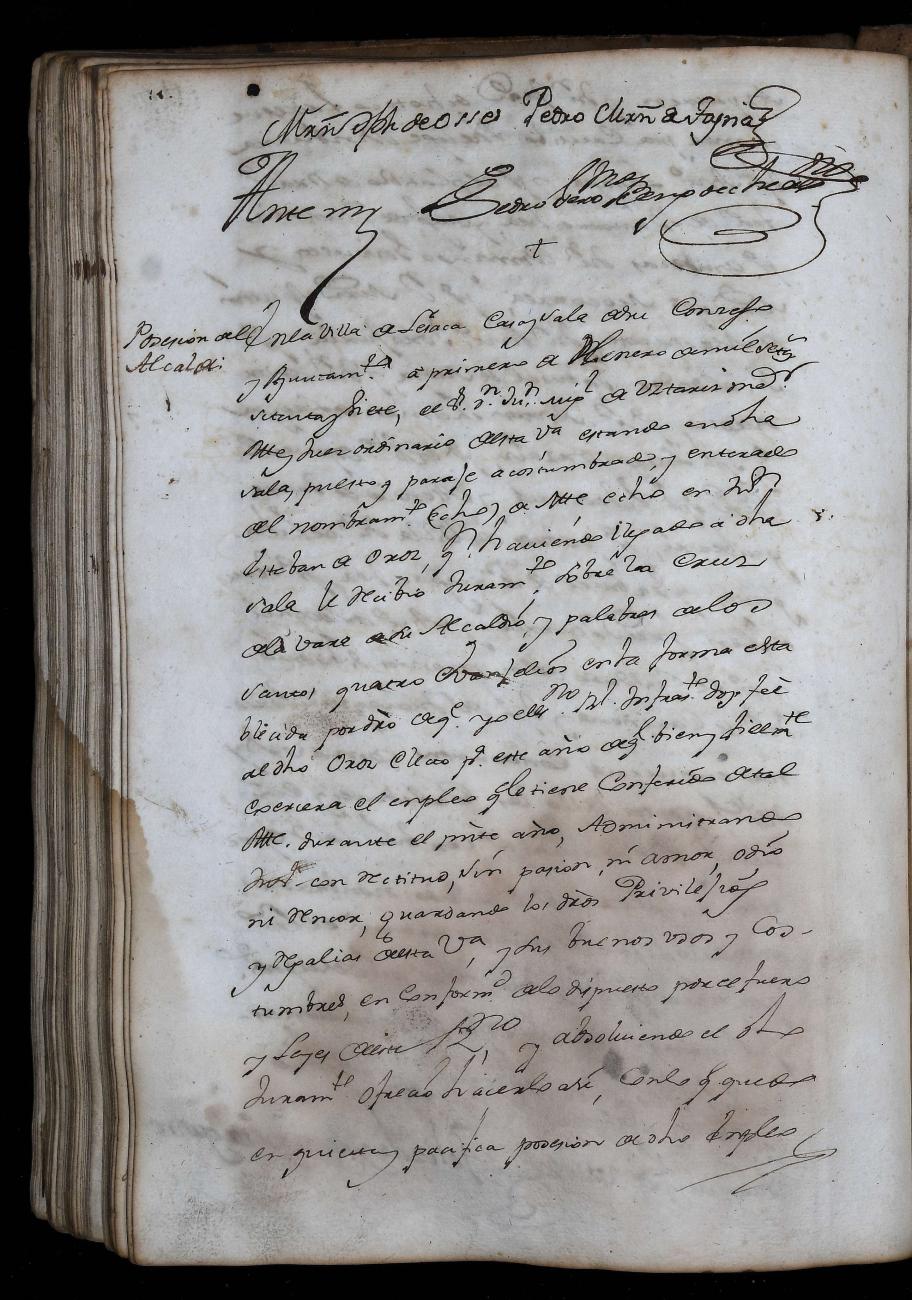 Mrñ Jph de Osses Pedro Mrñ de Tapia
Ante my Pedro
†
Posesion del
Alcalde:
En la Villa de Lesaca Casa y Sala de su Congreso
y Ayuntamto a primero de Henero de mil setecs
setenta y siete, el Sr Dn Jun Migl de
Alte y Juez ordinario desta Va estando en dha
sala, puesto y paraje acostumbrado, y enterado
del nombramto (echo) de Alte echo en Jun
Esteban de Oroz, qn haviendo llegado a dha
sala le recibio Juramto sobre la Cruz
de la vara de su Alcaldio, y palabras de los
santos quatro Evangelios en la forma esta
blecida por dro de q. yo el essno Rl. Infrasto doy fee
al dho Oroz Electo pa este año de q bien y fielmte
exercera el enpleo q le tiene Conferido de tal
Alte. durante el pnte año, Administrando
Justa con rectitud, sin pasion, ni amor, odio
ni rencor, guardando los dros Privilegios
y regalias desta Va, y sus buenos usos y Cos-
tumbres, en Conformd de lo dispuesto por el fuero
y Leyes deste Rno, y absolviendo el dho
Juramto ofrecio hacerlo asi, Con lo q. quedo
en quieta y pacifica posesion de dho Enpleo